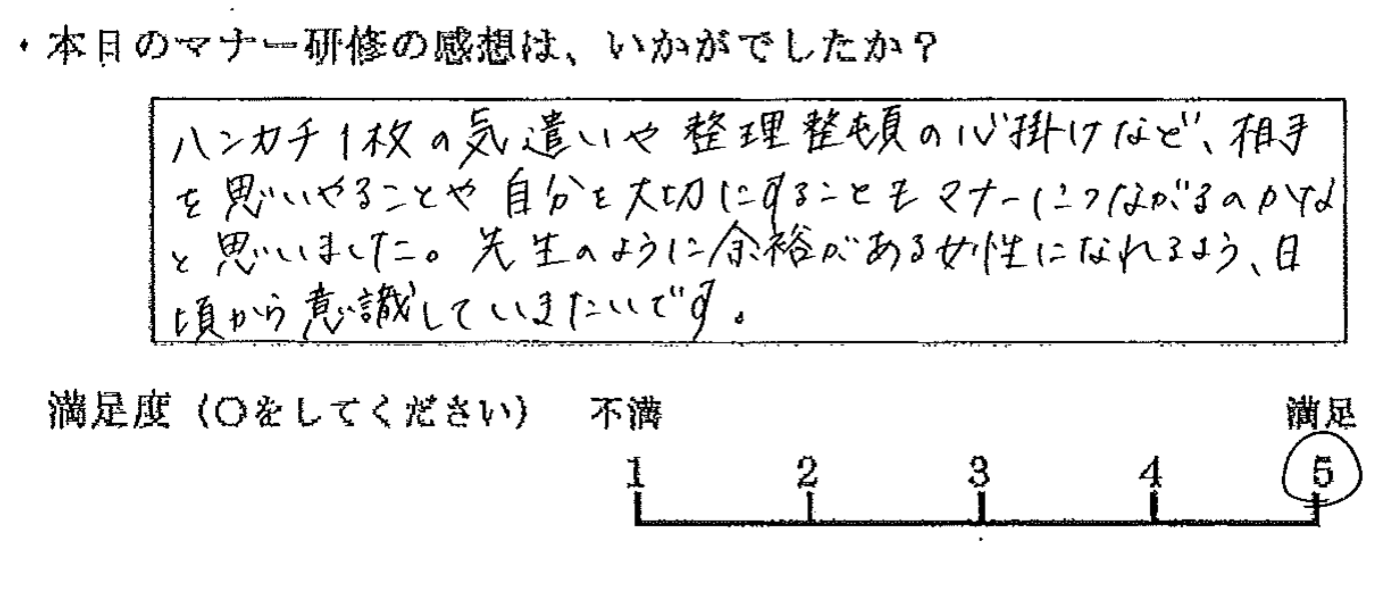 ・本日のマナー研修の感想は、いかがでしたか？
ハンカチ1枚の気遣いや整理整頓の心掛けなど、相手
を思いやることや自分を大切にすることもマナーにつながるのかな
と思いました。先生のように余裕がある女性になれるよう、日
頃から意識していきたいです。
満足度（○をしてください） 不満 満足
1 2 3 4 5